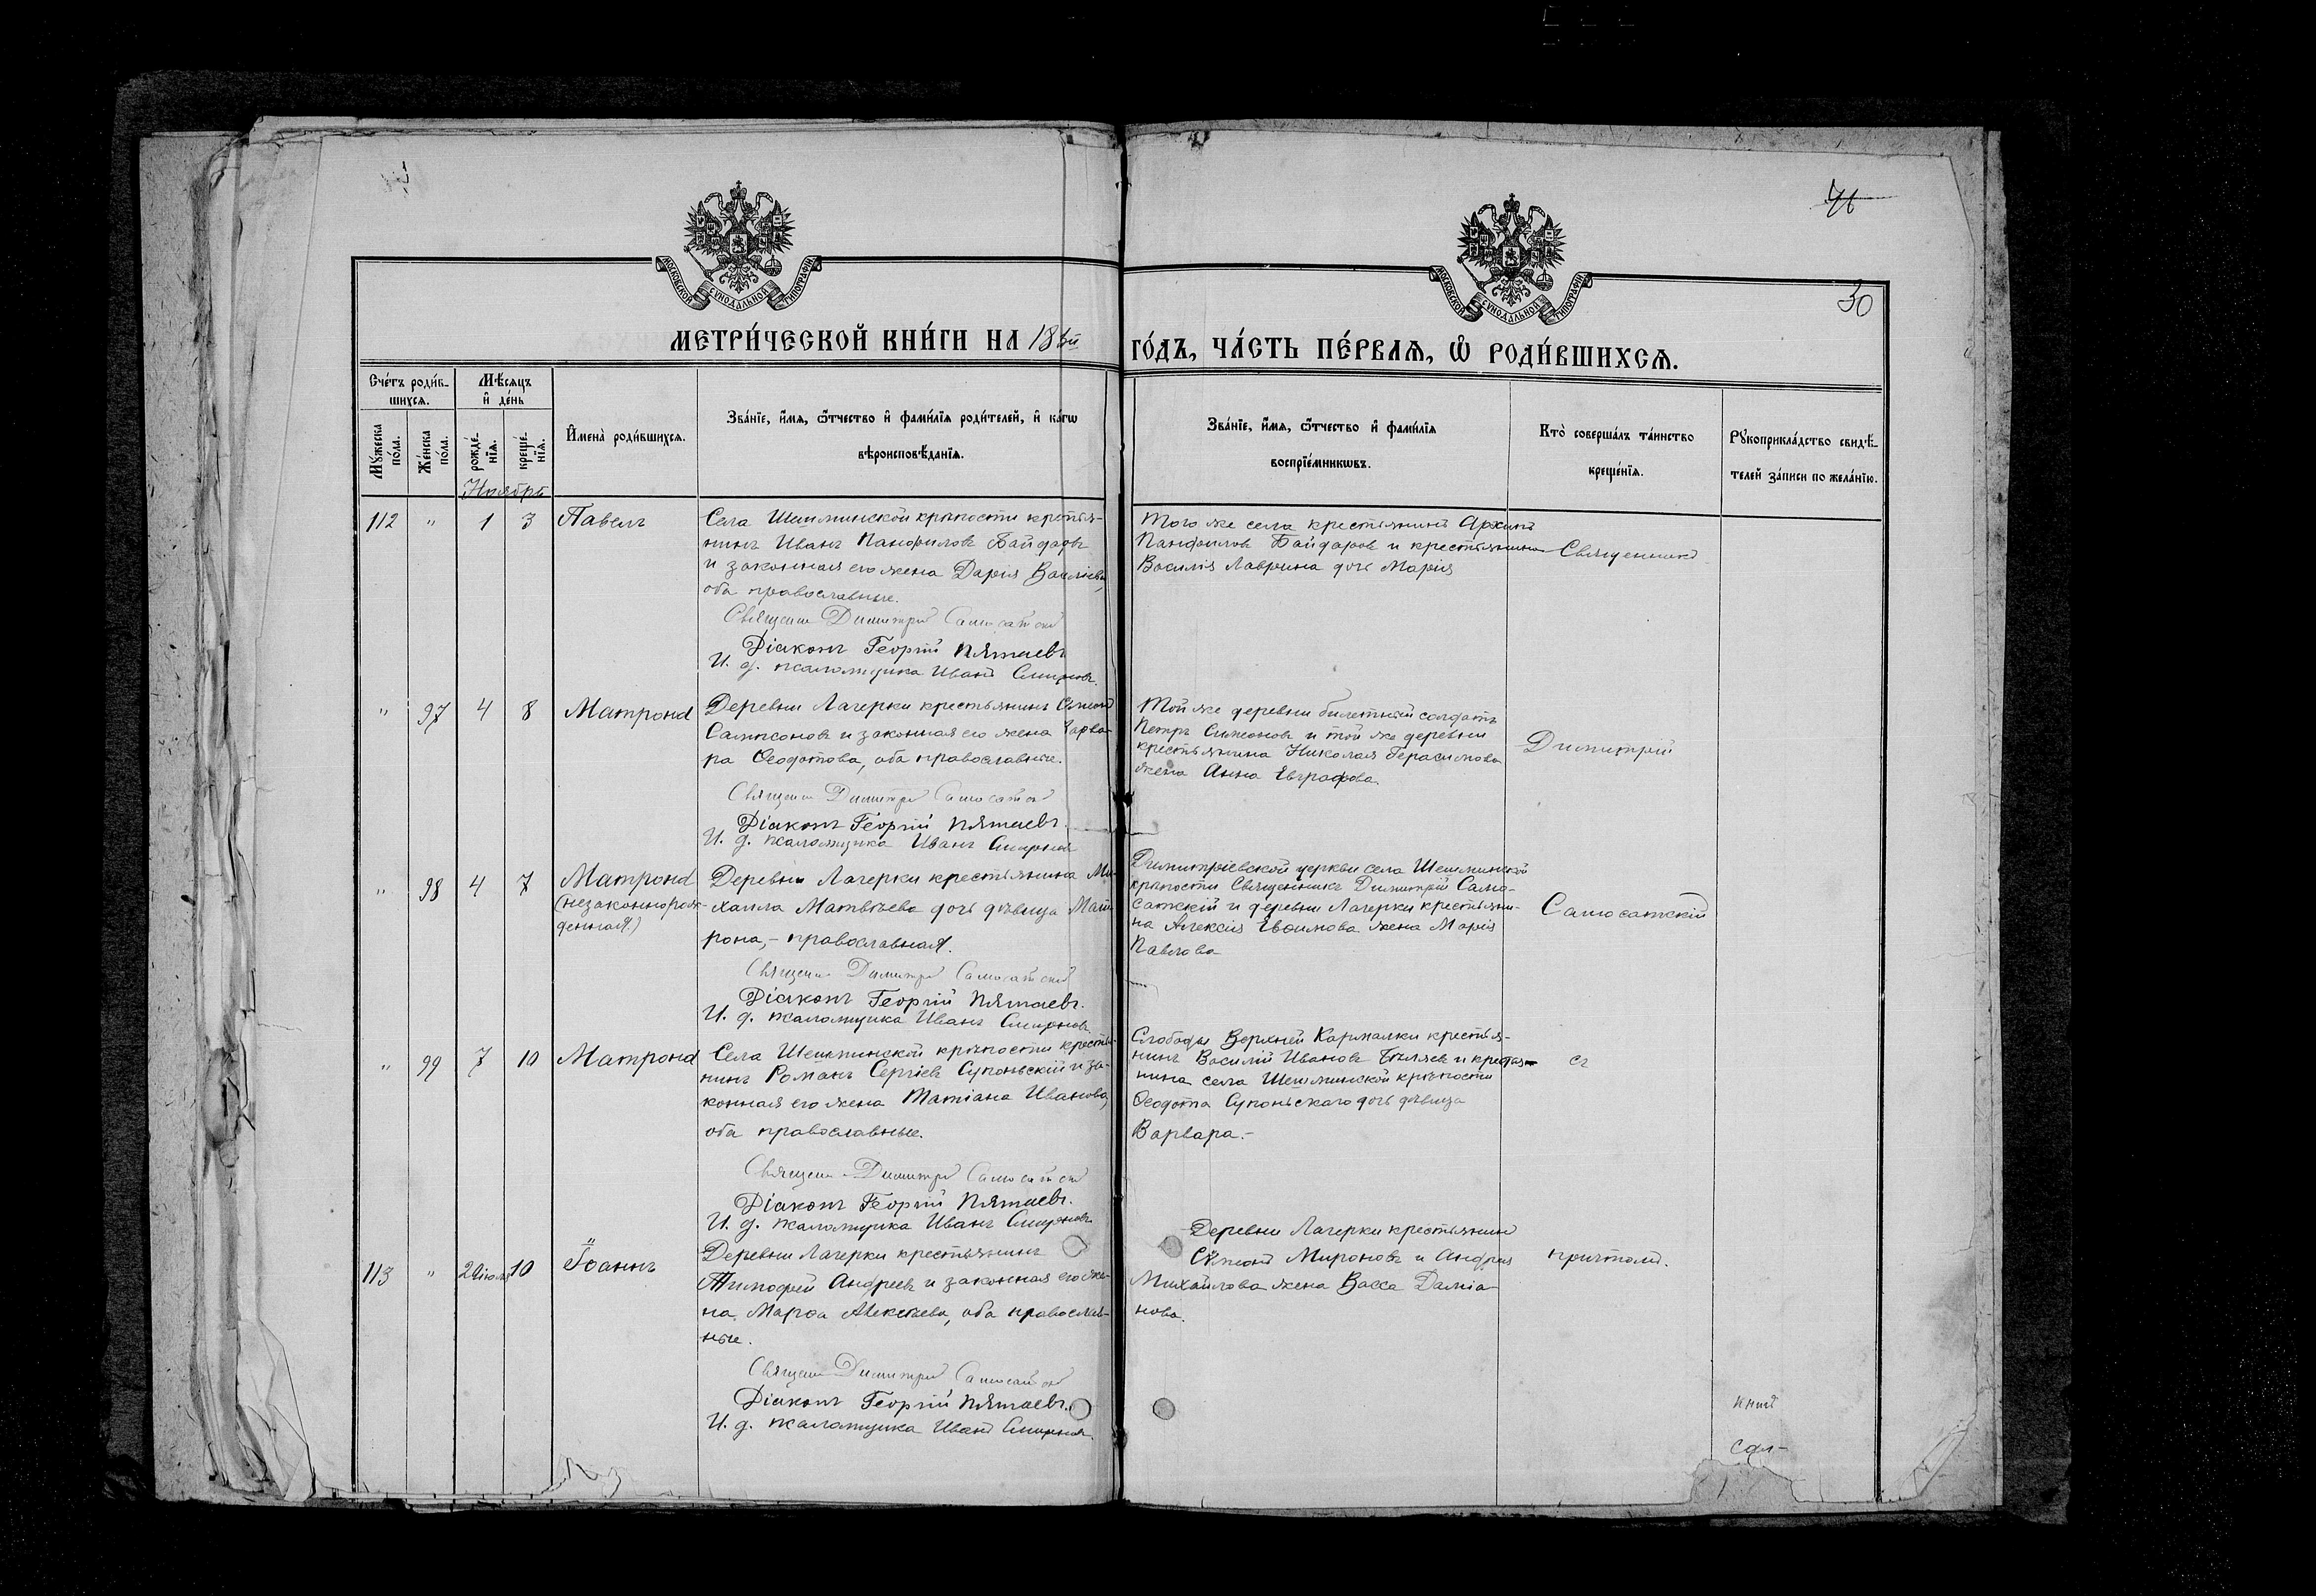 30
МОСКОВСКОЙ СѴНОДАЛЬНОЙ ТИПОГРАФІИ
МОСКОВСКОЙ СѴНОДАЛЬНОЙ ТИПОГРАФІИ
МЕТРИ́ЧЕСКОЙ КНИ́ГИ НА 18
ГО́ДЪ, ЧА́СТЬ ПЕ́РВАЯ, Ѡ҆ РОДИ́ВШИХСЯ.
Сче́тъ роди́в-
шихся.
Мѣ́сяцъ
и҆ де́нь
Му́жеска по́ла.
Же́нска по́ла.
рожде́-нїя.
креще́-нїя.
И҆мена̀ роди́вшихся.
Зва́нїе, и҆́мя, ѻ҆́тчество и҆ фами́лїя роди́телей, и҆ ка́гѡ
вѣроисповѣ́данїя.
Зва́нїе, и҆́мя, ѻ҆́тчество и҆ фами́лїя
воспрїе́мникѡвъ.
Кто̀ соверша́лъ та́инство
креще́нїя.
Рꙋкоприкла́дство свидѣ́-
телей за́писи по жела́нїю.
Ноябрь
112 " 1 3 Павелъ
Села Шешминской крѣпости крестья-
нинъ Иванъ Панфиловъ Байдаровъ
и законная его жена Дарія Васильева,
оба православные.
Священникъ Димитрій Самосатскій
Діаконъ Георгій Пятаевъ.
И. д. псаломщика Иванъ Смирновъ.
Того же села крестьянинъ Архипъ
Панфиловъ Байдаровъ и крестьянина
Василія Лаврина дочь Марія
Священникъ
" 97 4 8 Матрона
Деревни Лагерки крестьянинъ Симеонъ
Сампсоновъ и законная его жена Варва-
ра Ѳеодотова, оба православные.
Священникъ Димитрій Самосатскій
Діаконъ Георгій Пятаевъ.
И. д. псаломщика Иванъ Смирновъ
Той же деревни билетный солдатъ
Петръ Симеоновъ и той же деревни
крестьянина Николая Герасимова
жена Анна Евграфова.
Димитрій
" 98 4 7 Матрона
(незаконнорож-
денная.)
Деревни Лагерки крестьянина Ми-
хаила Матвѣева дочь дѣвица Мат-
рона,- православная.
Священникъ Димитрій Самосатскій
Діаконъ Георгій Пятаевъ.
И. д. псаломщика Иванъ Смирновъ.
Димитріевской церкви села Шешминской
крѣпости Священникъ Димитрій Само-
сатскій и деревни Лагерки крестьяни-
на Алексія Евѳимова жена Марія
Павлова
Самосатскій
" 99 7 10 Матрона
Села Шешминской крѣпости крестья-
нинъ Романъ Сергіевъ Супоньскій и за-
конная его жена Татіана Иванова,
оба православные.
Священникъ Димитрій Самосатскій
Діаконъ Георгій Пятаевъ.
И. д. псаломщика Иванъ Смирновъ.
Слободы Верхней Кармалки крестья-
нинъ Василій Ивановъ Бѣляевъ и крестья-
нина села Шешминской крѣпости
Ѳеодота Супоньскаго дочь дѣвица
Варвара.-
съ
113 " 10 Іоаннъ
Деревни Лагерки крестьянинъ
Тимофей Андреевъ и законная его же-
на, Марѳа Алексѣева, оба православ-
ные.
Священникъ Димитрій Самосатскій
Діаконъ Георгій Пятаевъ.
И. д. псаломщика Иванъ Смирновъ.
Деревни Лагерки крестьянинъ
Симеонъ Мироновъ и Андрея
Михайлова жена Васса Даміа-
нова.
причтомъ.